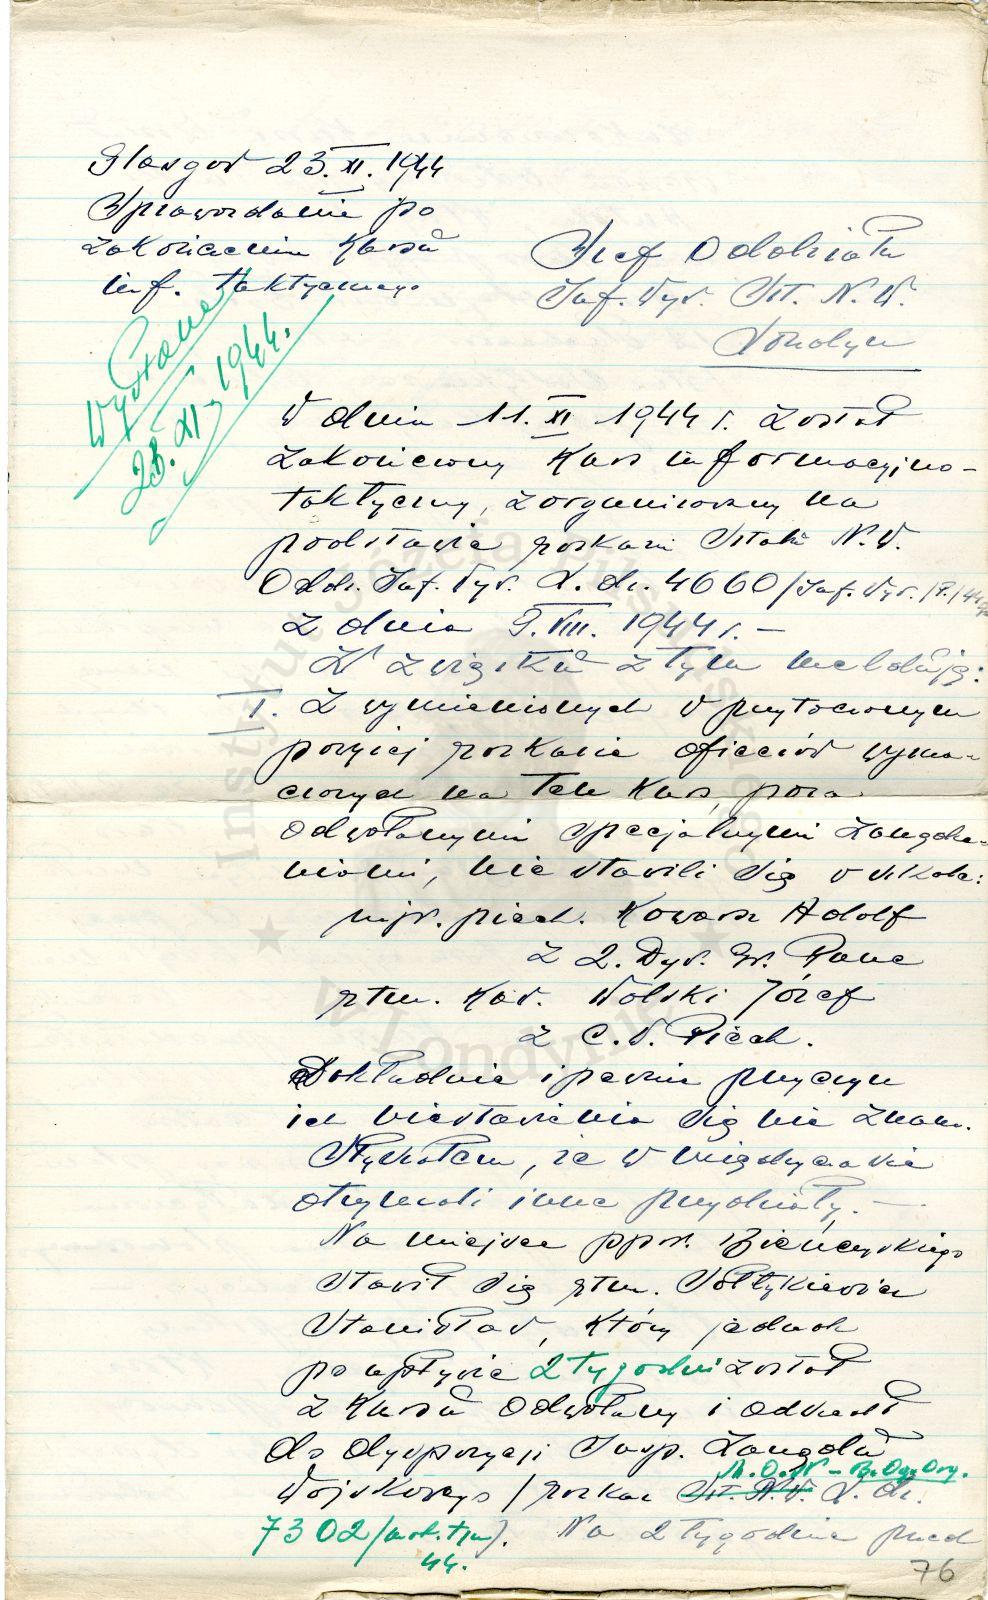 Glasgow 23.XI.1944
Sprawozdanie po
zakończeniu Kursu
inf. taktycznego
Wysłane
23.XI.1944.
Szef Oddziału
Inf. Wyw. Szt. N.W.
Londyn
W dniu 11.XI 1944 r. został
zakończony Kurs informacyjno-
taktyczny, zorganizowany na
podstawie rozkazu Sztabu N.W.
Oddz. Inf. Wyw. L.dz. 4660/Inf. Wyw./
z dnia 9.VIII. 1944 r. –
W związku z tym melduję:
I. Z wymienionych w przytoczonym
powyżej rozkazie oficerów wyzna-
czonych na ten Kurs, poza
odwołanymi specjalnymi zarządze-
niami, nie stawili się w szkole:
mjr. piech. Kowarz Adolf
z 2. Dyw. Gr. Panc
rtm. Kaw. Wolski Józef
z C.W. Piech.
Dokładnie i pewnie przyczyn
ich niestawienia się nie znam.
Słyszałem, że w międzyczasie
otrzymali inne przydziały. –
Na miejsce ppor. Bieńczyskiego
stawił się rtm. Sołtykiewicz
Stanisław, który jednak
po upływie 2 tygodni został
z Kursu odwołany i odszedł
do dyspozycji Insp. Zarządu
M.O.N – B.Og.Org.
Wojskowego /rozkaz Szt. N.W. L.dz.
7302/ . Na 2 tygodnie przed
44.
76
Instytut
Londynie